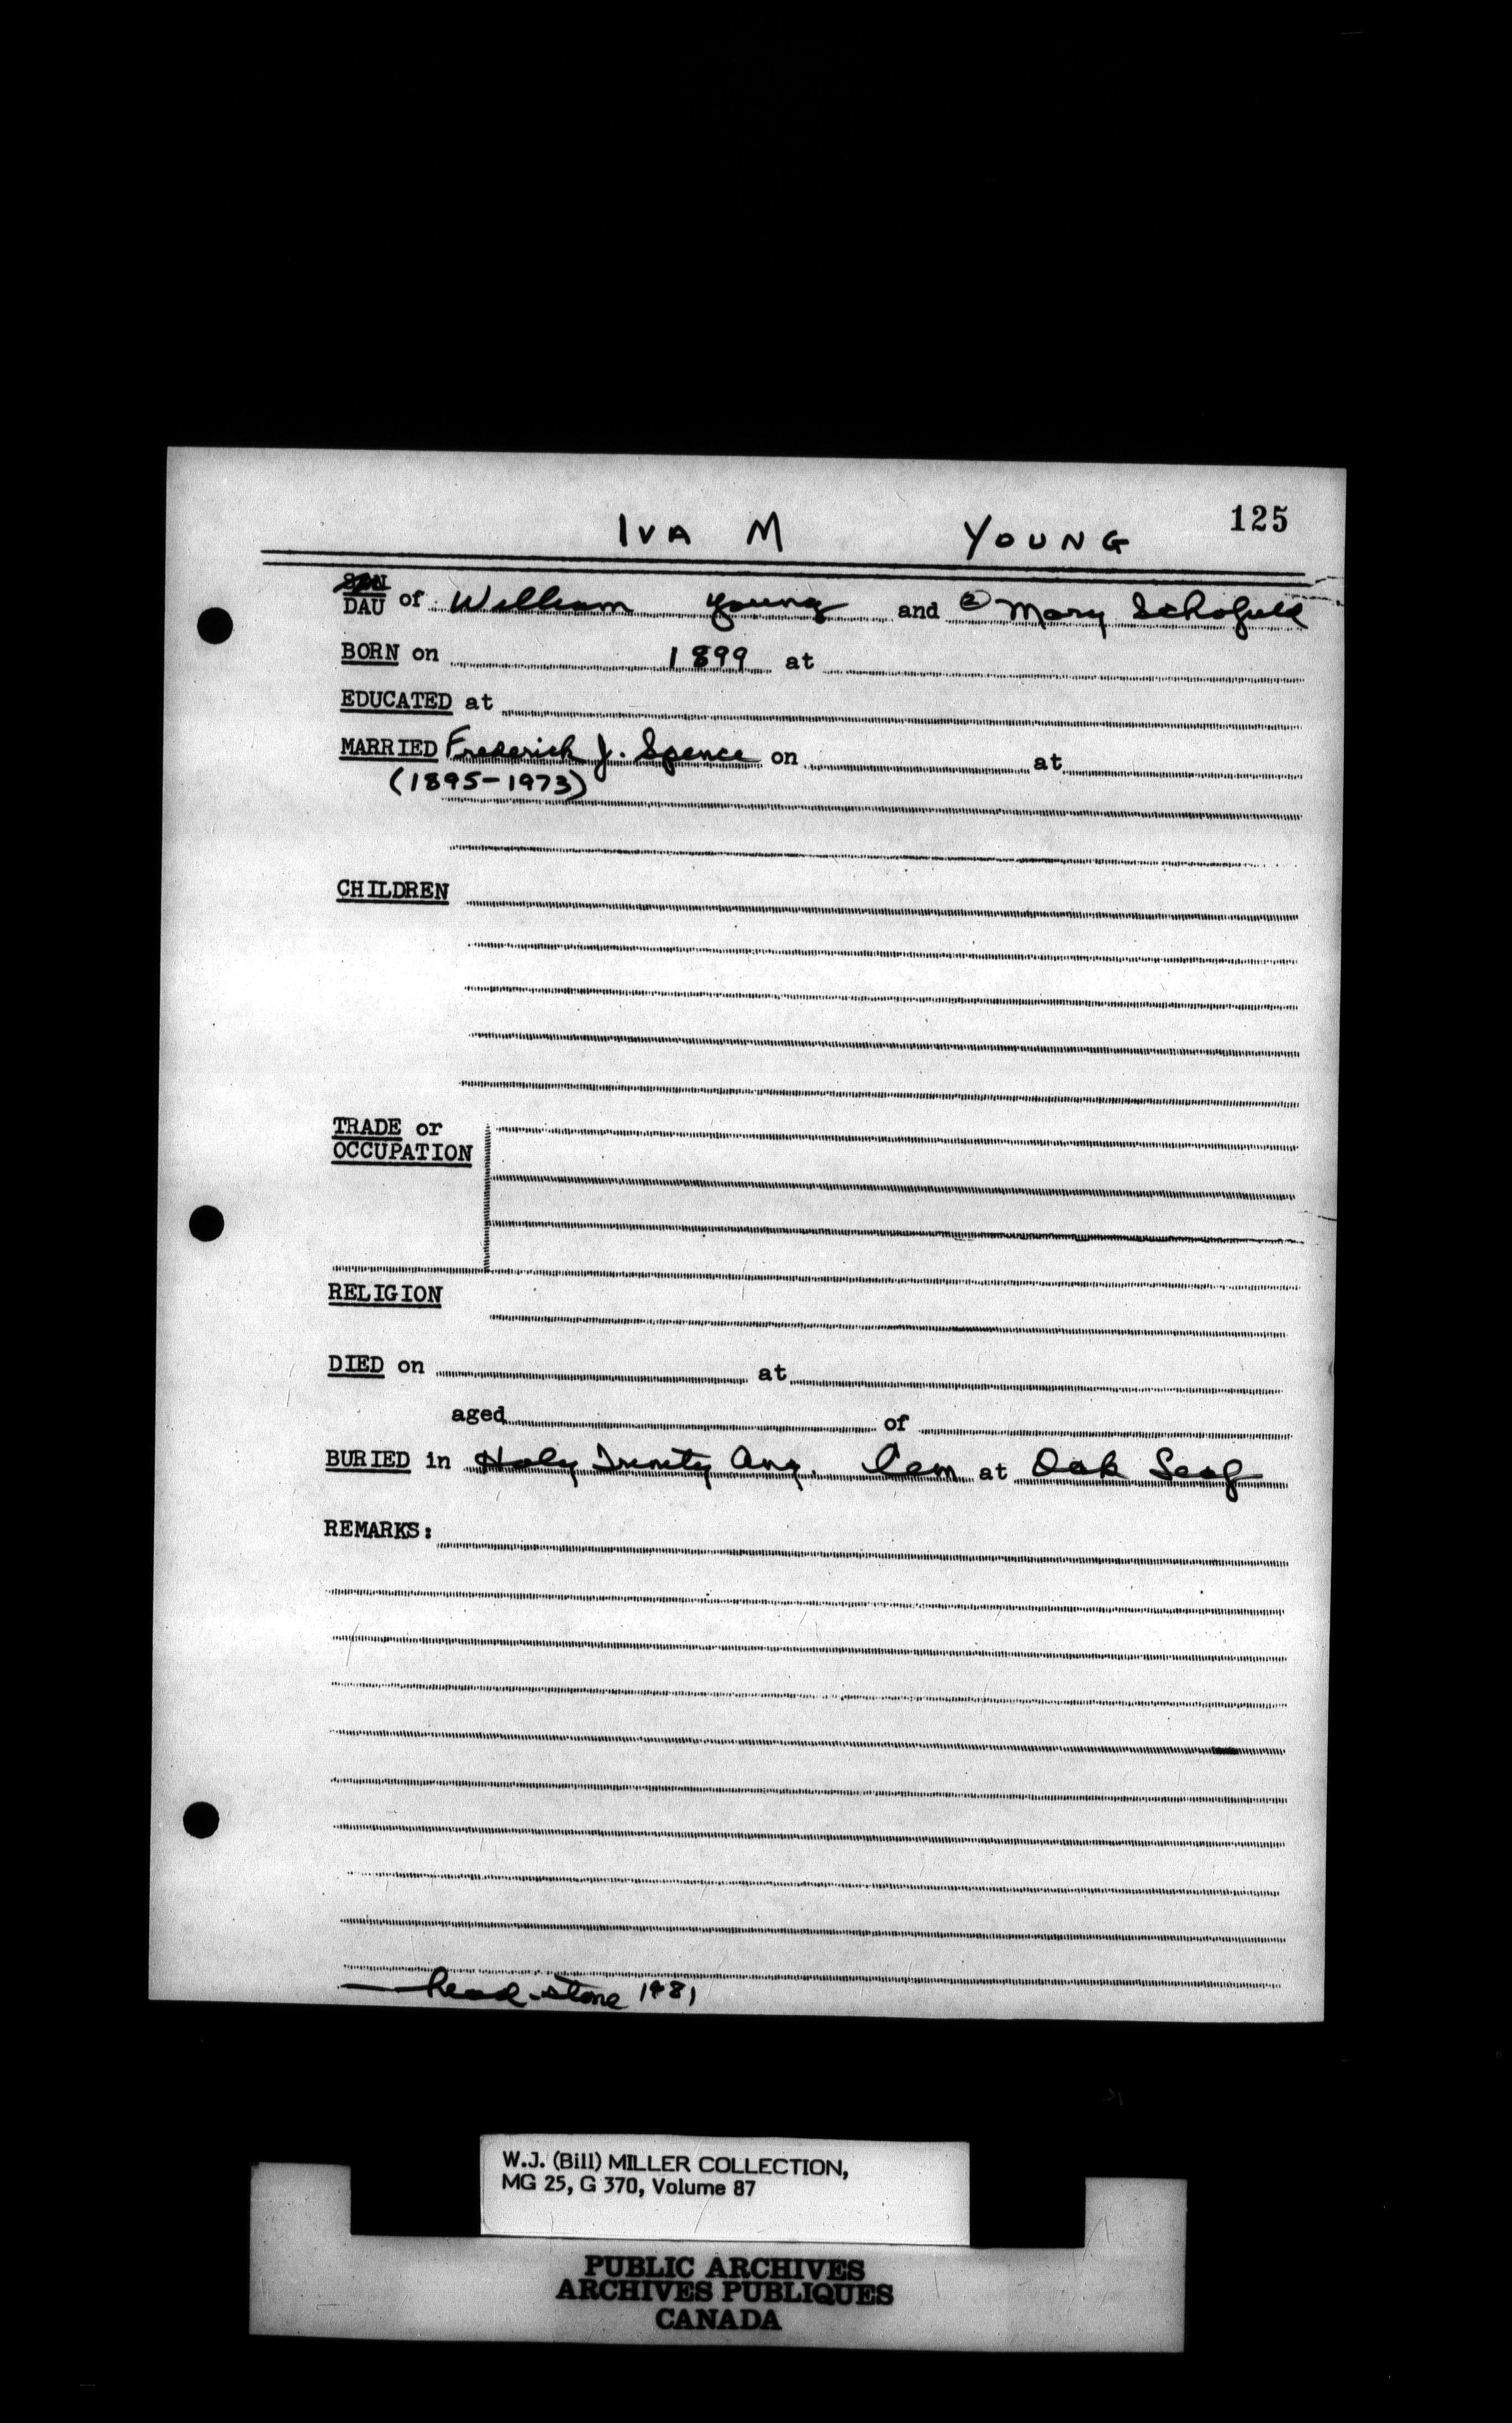 125
IVA M YOUNG
SON
DAU of William Young and ② Mary Schofield
BORN on 1899 at
EDUCATED at
MARRIED Frederick J. Spence on at
(1895-1973)
CHILDREN
TRADE or
OCCUPATION
RELIGION
DIED on at
aged of
BURIED in Holy Trinity Ang. Cem at Oak Leaf
REMARKS:
head-stone 1981
W.J. (Bill) MILLER COLLECTION,
MG 25, G 370, Volume 87
PUBLIC ARCHIVES
ARCHIVES PUBLIQUES
CANADA